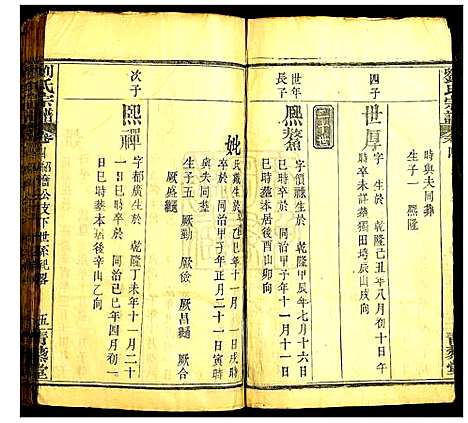 劉氏宗譜
卷四
時與夫同葬
生子一 熙隆
四子
世厚
字 生於 乾隆己丑年八月初十日午
時卒未詳葬獨田垮辰山戌向
世年
長子
熙鰲
字價祿生於 乾隆甲辰年七月十六日
巳時卒於 同治甲子年十一月十一日
巳時葬本居後酉山卯向
姚氏
生於 乙巳年十一月 一日戌時
卒於 同治甲子年正月二十一日寅時
與夫同葬
生子五 厥勤 厥儉 厥昌 厥合
厥盛
次子
熙禪
字都廣生於 乾隆丁未年十一月二十
日巳時卒於 同治己巳年四月初一
日巳時葬本居後辛山乙向
劉氏宗譜
卷四
公枝下世系紀畧
五
青藜堂